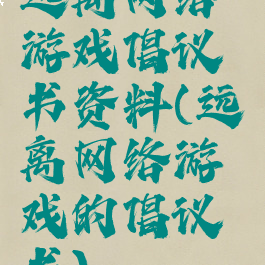 远离网络
游戏倡议
书资料(远
离网络游
戏的倡议
书)